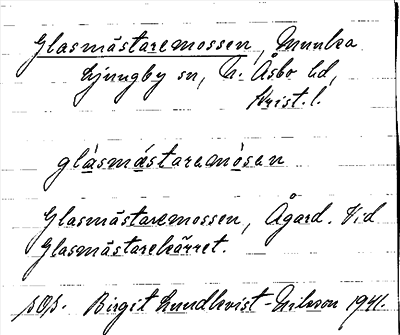 Glasmästaremossen, Munka
Ljungby sn, N. Åsbo hd,
Krist. l.
glásmästaremòsen
Glasmästaremossen, Ågard. Vid
Glasmästarekärret.
Birgit Lundkvist-Nilsson 1941.